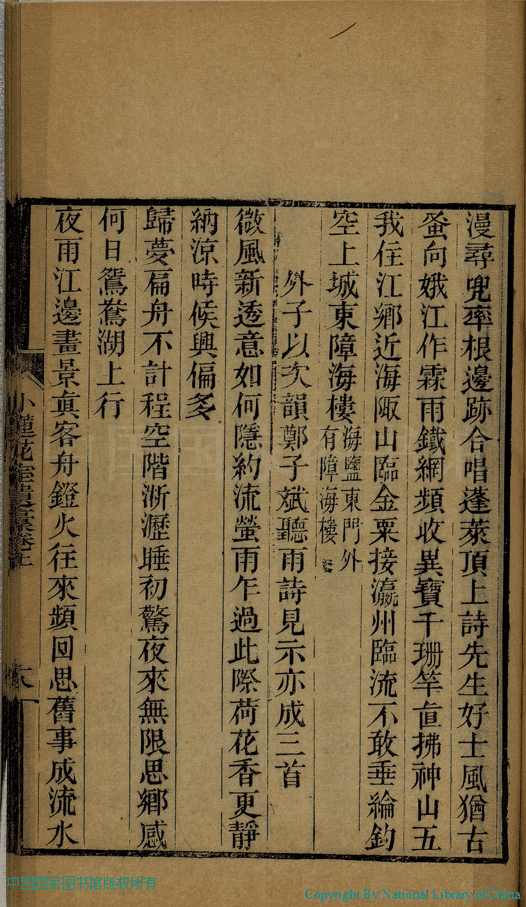 漫尋兜率根邊跡合唱蓬萊頂上詩先生好士風猶古
蚤向娥江作霖雨鐵網頻收異寶千珊竿直拂神山五
我住江鄉近海陬山臨金粟接瀛州臨流不敢垂綸釣
空上城東障海樓海鹽東門外有障海樓
外子以次韻鄭子斌聽雨詩見示亦成三首
微風新透意如何隱約流螢雨乍過此際荷花香更靜
納涼時候興偏多
歸夢扁舟不計程空階淅瀝睡初驚夜來無限思鄉感
何日鴛鴦湖上行
夜雨江邊畫景真客舟鐙火往來頻回思舊事成流水
小蓮花室遺稾卷上
中国国家图书馆版权所有
Copyright By National Library of China